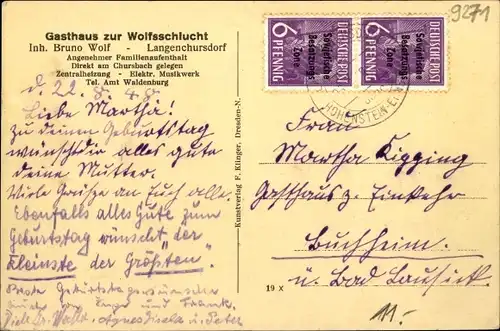 Gasthaus zur Wolfsschlucht
Inh. Bruno Wolf - Langenchursdorf
Angenehmer Familienaufenthalt
Direkt am Chursbach gelegen
Zentralheizung - Elektr. Musikwerk
Tel. Amt Waldenburg
d. 22. 8. 48.
Liebe Martha!
Zu deinem Geburtstag
wünscht dir alles gute
deine Mutter.
Viele Grüße an Euch alle.
Ebenfalls alles Gute zum
Geburtstag wünscht "der
Kleinste der Größten".
Geburtstagswünsche
und Frank,
u. Peter
Kunstverlag F. Klinger, Dresden-N.
9271
6 PFENNIG
DEUTSCHE POST
Sowjetische
Besatzungs
Zone
6 PFENNIG
DEUTSCHE POST
Sowjetische
Besatzungs
Zone
HOHENSTEIN-E
Frau
Martha Kipping
Gasthaus z. Einkehr
Buchheim.
ü. Bad Lausick.
19 x
11.-